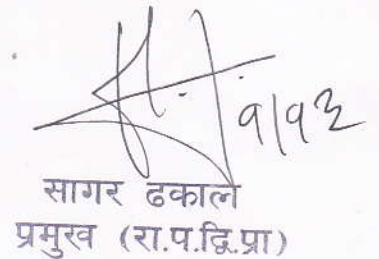 ९/१३
सागर ढकाल
प्रमुख (रा.प.द्वि.प्रा)